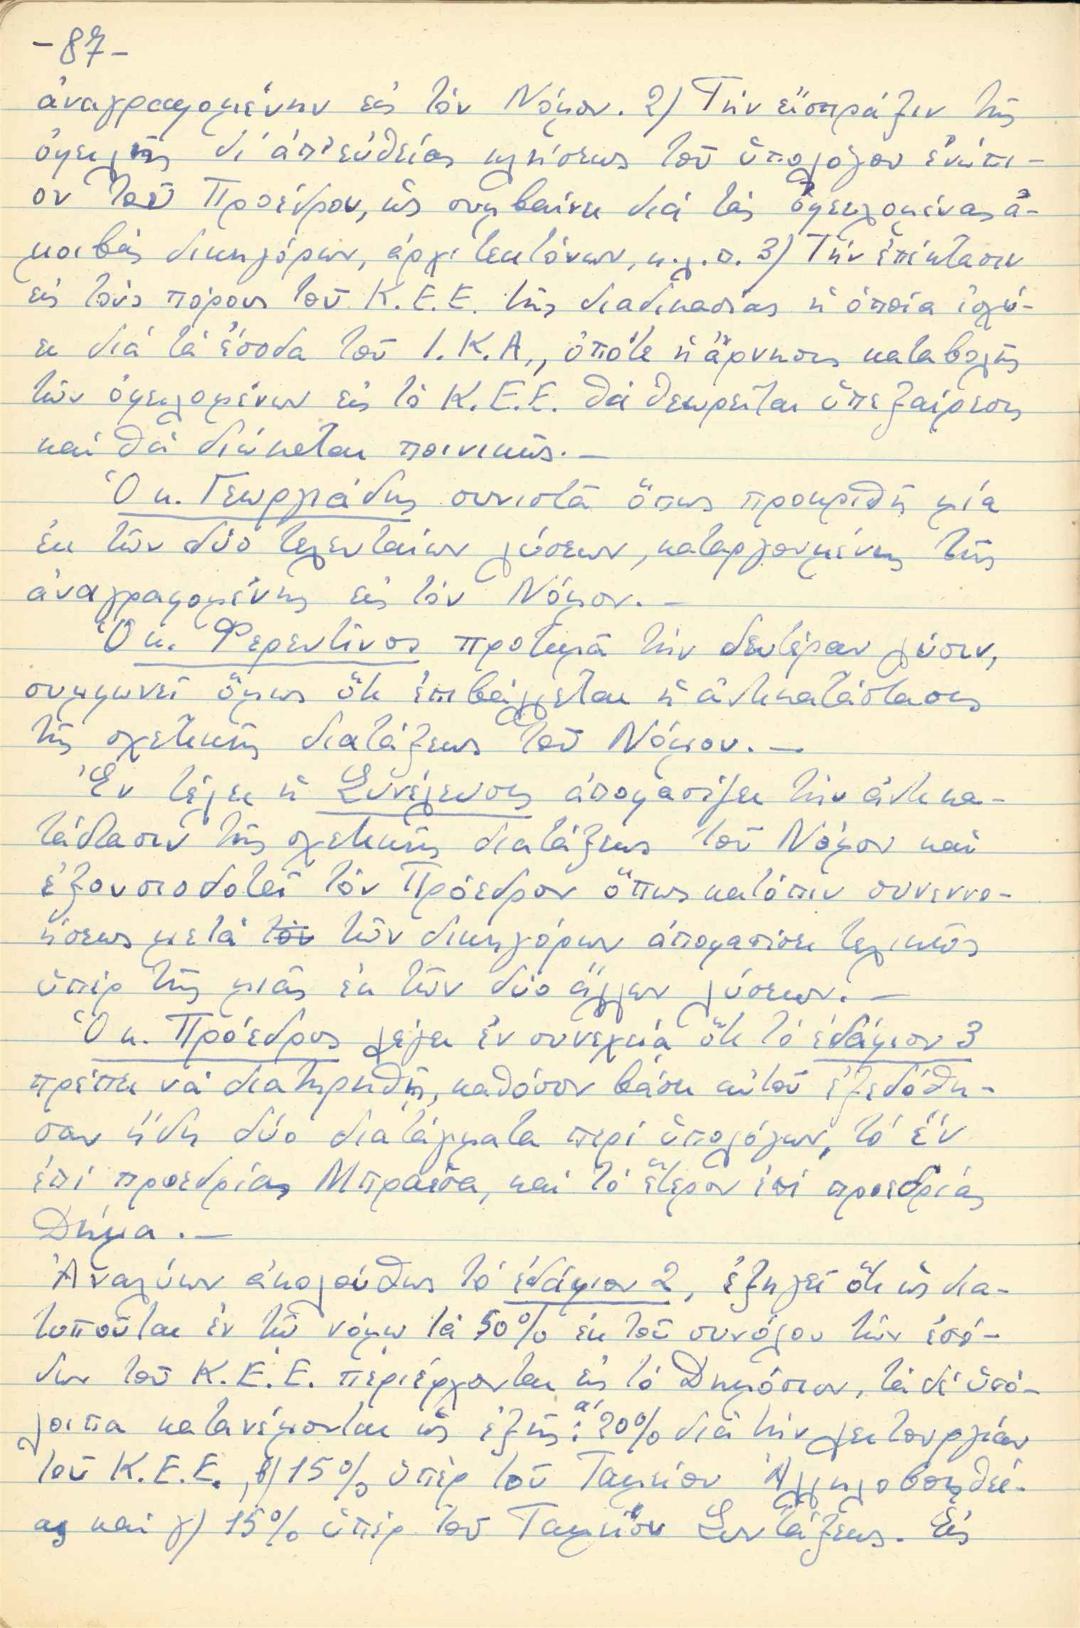 -87-
ἀναγραφομένην εἰς τόν Νόμον. 2) Τήν εἴσπραξιν τῆς
ὀφειλῆς δι' ἀπ' εὐθείας κλήσεως τοῦ ὑπολόγου ἐνώπι-
ον τοῦ Προέδρου, ὡς συμβαίνει διά τάς ὀφειλομένας ἀ-
μοιβάς δικηγόρων, ἀρχιτεκτόνων, κ.λ.π. 3) Τήν ἐπέκτασιν
εἰς τούς πόρους τοῦ Κ.Ε.Ε. τῆς διαδικασίας ἡ ὁποία ἰσχύ-
ει διά τά ἔσοδα τοῦ Ι.Κ.Α., ὁπότε ἡ ἄρνησις καταβολῆς
τῶν ὀφειλομένων εἰς τό Κ.Ε.Ε. θά θεωρεῖται ὑπεξαίρεσις
καί θά διώκεται ποινικῶς.-
Ὁ κ. Γεωργιάδης συνιστᾶ ὅπως προκριθῆ μία
ἐκ τῶν δύο τελευταίων λύσεων, καταργουμένης τῆς
ἀναγραφομένης εἰς τόν Νόμον.-
Ὁ κ. Φερεντῖνος προτιμᾶ τήν δευτέραν λύσιν,
συμφωνεῖ ὅμως ὅτι ἐπιβάλλεται ἡ ἀντικατάστασις
τῆς σχετικῆς διατάξεως τοῦ Νόμου.-
Ἐν τέλει ἡ Συνέλευσις ἀποφασίζει τήν ἀντικα-
τάστασιν τῆς σχετικῆς διατάξεως τοῦ Νόμου καί
ἐξουσιοδοτεῖ τόν Πρόεδρον ὅπως κατόπιν συνεννο-
ήσεως μετά τόν τῶν δικηγόρων ἀποφασίσει τελικῶς
ὑπέρ τῆς μιᾶς ἐκ τῶν δύο ἄλλων λύσεων.-
Ὁ κ. Πρόεδρος λέγει ἐν συνεχείᾳ ὅτι τό ἐδάφιον 3
πρέπει νά διατηρηθῆ, καθόσον βάσει αὐτοῦ ἐξεδόθη-
σαν ἤδη δύο διατάγματα περί ὑπολόγων, τό ἕν
ἐπί προεδρίας Μπραέσα, καί τό ἕτερον ἐπί προεδρίας
Δήμα.-
Ἀναλύων ἀκολούθως τό ἐδάφιον 2, ἐξηγεῖ ὅτι ὡς δια-
τυποῦται ἐν τῶ νόμω τά 50% ἐκ τοῦ συνόλου τῶν ἐσό-
δων τοῦ Κ.Ε.Ε. περιέρχονται εἰς τό Δημόσιον, τά δέ ὑπό-
λοιπα κατανέμονται ὡς ἑξῆς: α) 20% διά τήν λειτουργίαν
τοῦ Κ.Ε.Ε., β) 15% ὑπέρ τοῦ Ταμείου Ἀλληλοβοηθεί-
ας καί γ) 15% ὑπέρ τοῦ Ταμείου Συντάξεως. Εἰς